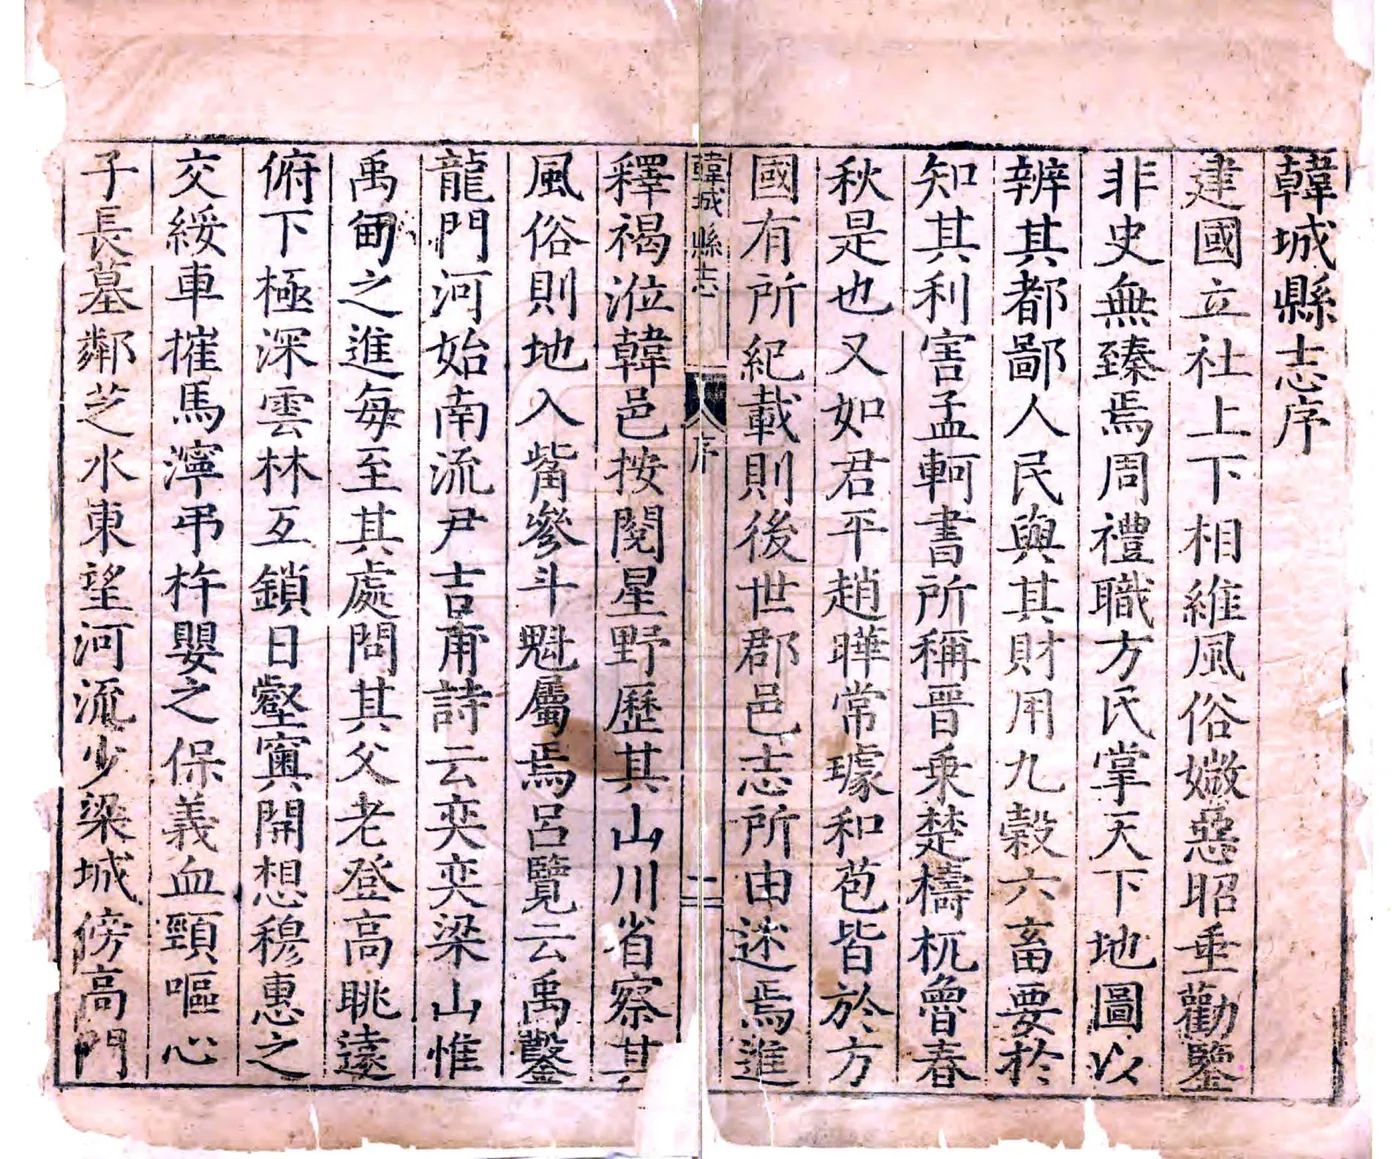 韓城縣志序
建國立社上下相維風俗媺惡昭垂勸鑒
非史無臻焉周禮職方氏掌天下地圖以
辨其都鄙人民與其財用九穀六畜要於
知其利害孟軻書所稱晉乘楚檮杌魯春
秋是也又如君平趙曄常璩和苞皆於方
國有所紀載則後世郡邑志所由述焉進
韓城縣志
序
二
釋褐涖韓邑按閱星野歷其山川省察其
風俗則地入觜參斗魁屬焉呂覽云禹鑿
龍門河始南流尹吉甫詩云奕奕梁山惟
禹甸之進每至其處問其父老登高眺遠
俯下極深雲林互鎖日壑寘開想穆惠之
交綏車摧馬濘弔杵嬰之保義血頸嘔心
子長墓鄰芝水東望河流少梁城傍高門